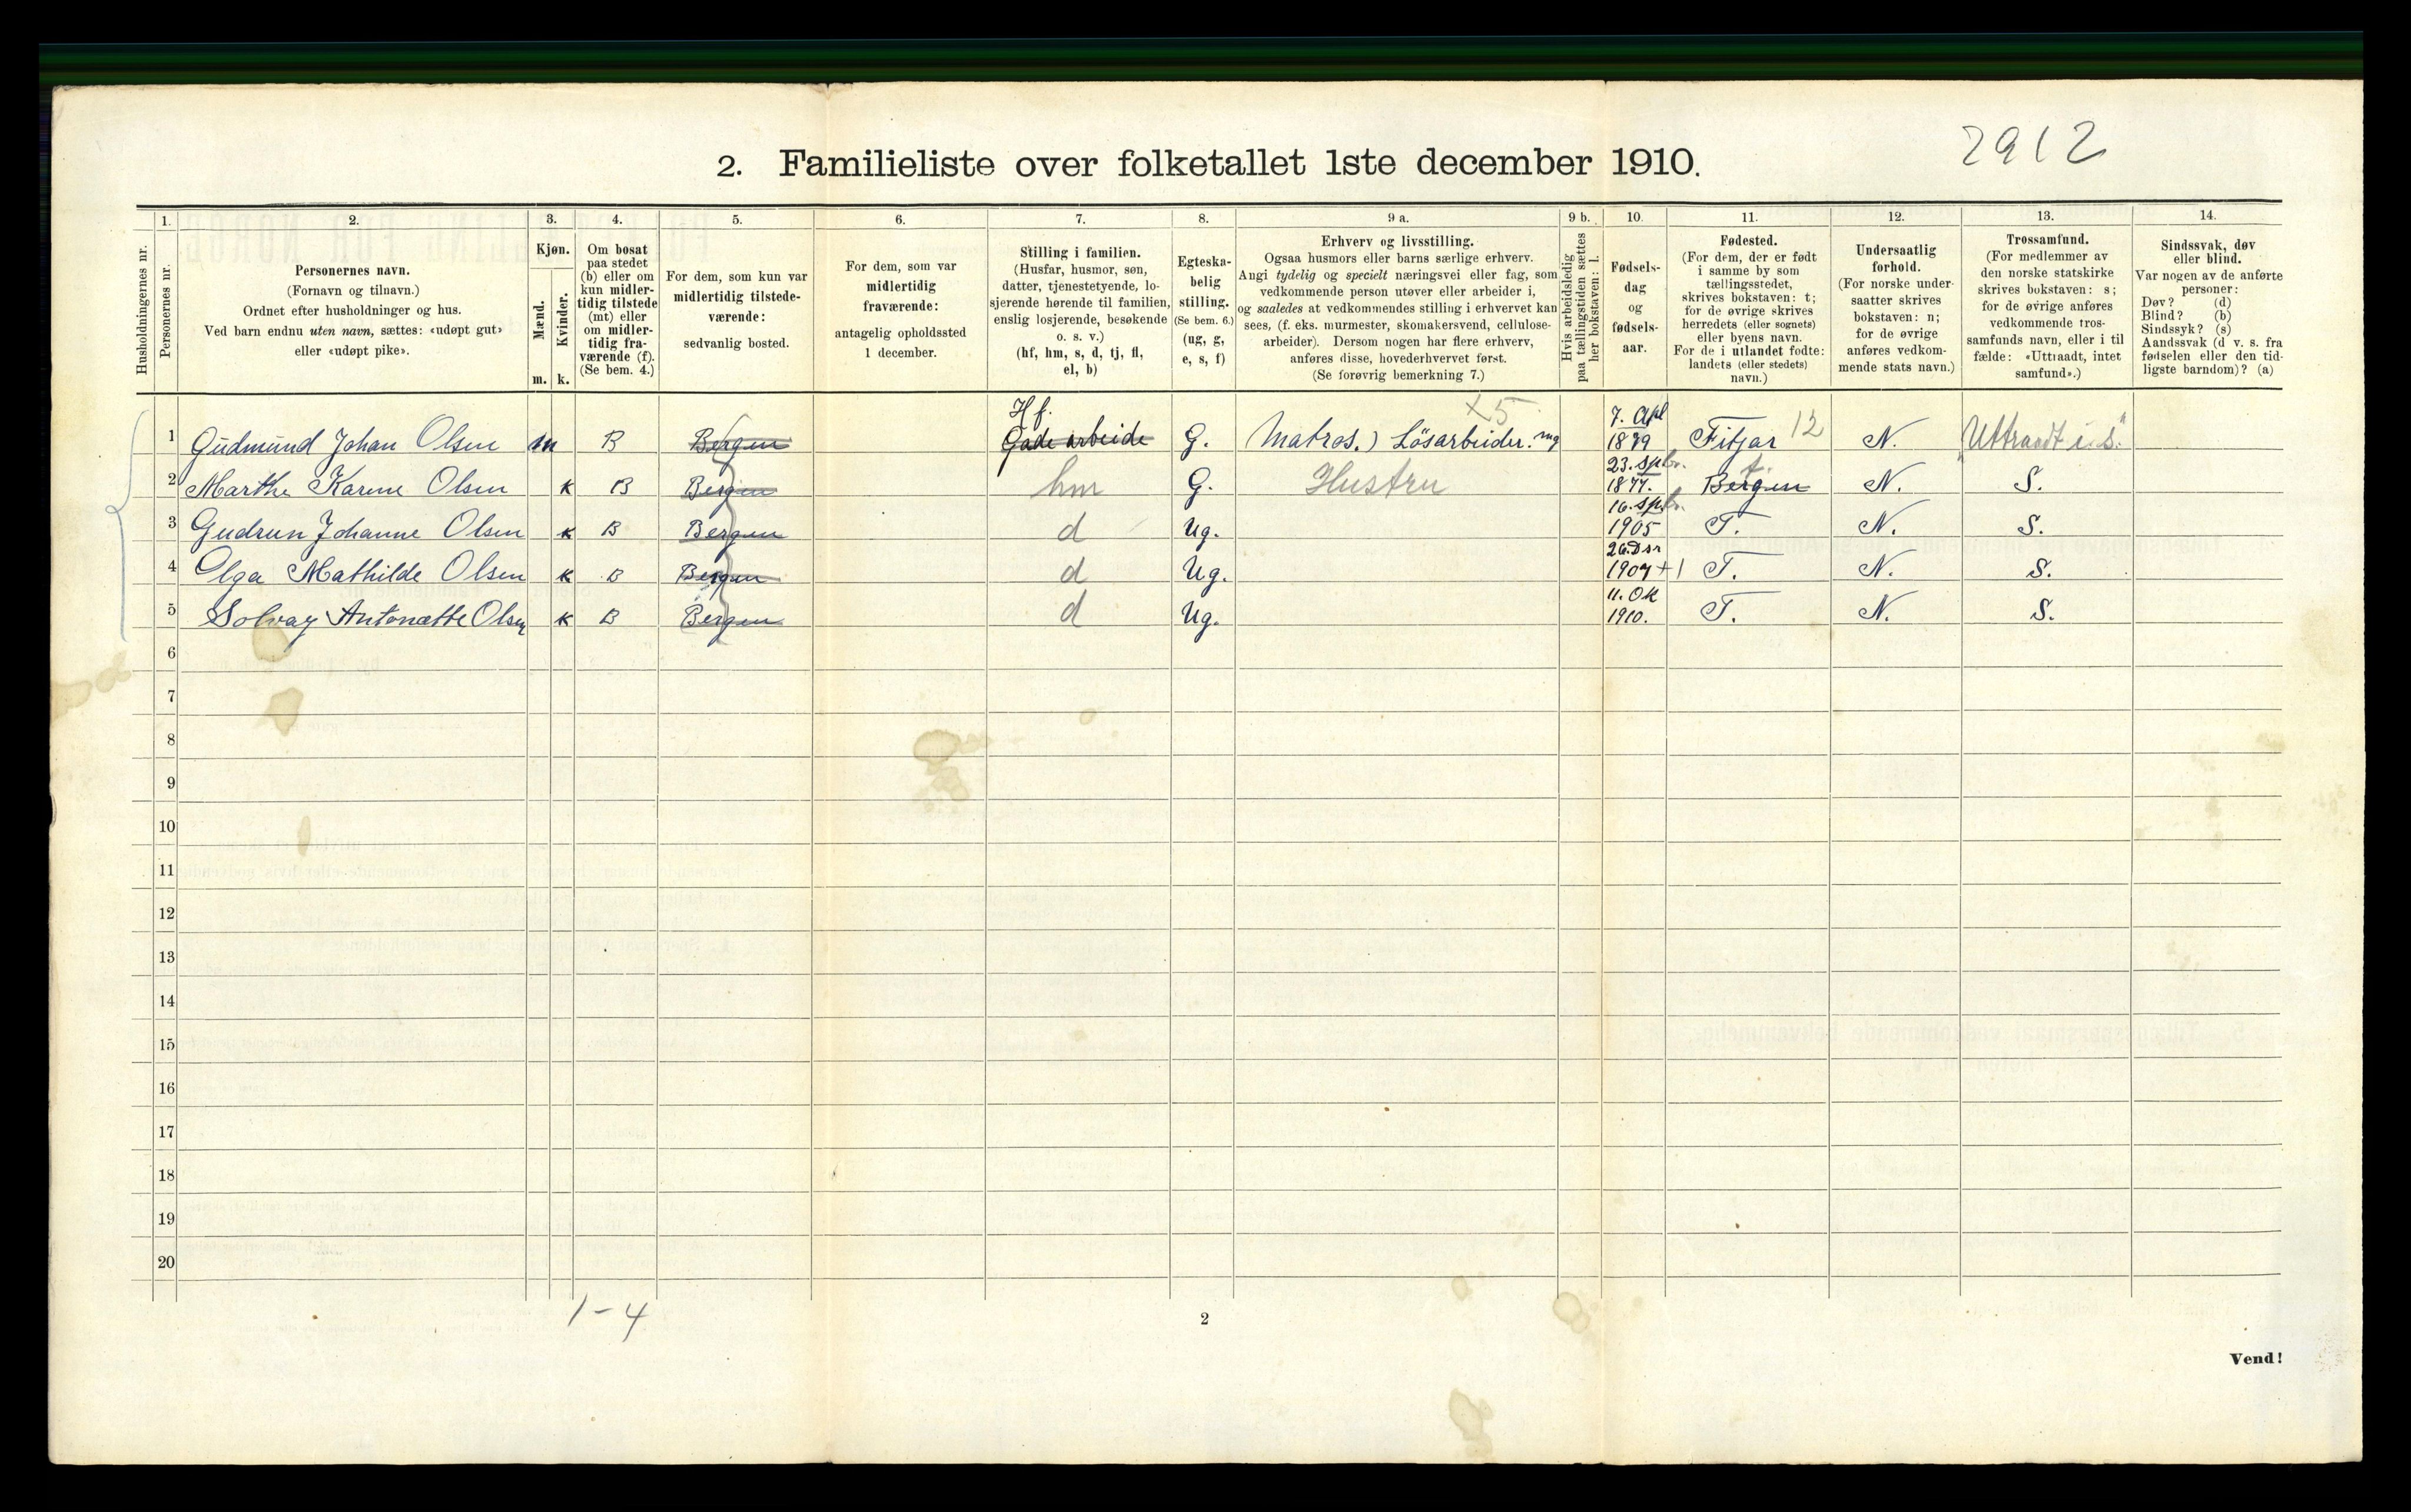 2912
2. Familieliste over folketallet 1ste december 1910.
1. 2. 3. 4. 5. 6. 7. 8. 9 a. 9 b. 10. 11. 12. 13. 14.
Husholdningernes nr.
Personernes nr.
Personernes navn.
(Fornavn og tilnavn.)
Ordnet efter husholdninger og hus.
Ved barn endnu uten navn, sættes: «udøpt gut»
eller «udøpt pike».
Kjøn.
Mænd.
Kvinder.
m. k.
Om bosat
paa stedet
(b) eller om
kun midler-
tidig tilstede
(mt) eller
om midler-
tidig fra-
værende (f).
(Se bem. 4.)
For dem, som kun var
midlertidig tilstede-
værende:
sedvanlig bosted.
For dem, som var
midlertidig
fraværende:
antagelig opholdssted
1 december.
Stilling i familien.
(Husfar, husmor, søn,
datter, tjenestetyende, lo-
sjerende hørende til familien,
enslig losjerende, besøkende
o. s. v.)
(hf, hm, s, d, tj, fl,
el, b)
Egteska-
belig
stilling.
(Se bem. 6.)
(ug, g,
e, s, f)
Erhverv og livsstilling.
Ogsaa husmors eller barns særlige erhverv.
Angi tydelig og specielt næringsvei eller fag, som
vedkommende person utøver eller arbeider i,
og saaledes at vedkommendes stilling i erhvervet kan
sees, (f. eks. murmester, skomakersvend, cellulose-
arbeider). Dersom nogen har flere erhverv,
anføres disse, hovederhvervet først.
(Se forøvrig bemerkning 7.)
Hvis arbeidsledig
paa tællingstiden sættes
her bokstaven: l.
Fødsels-
dag
og
fødsels-
aar.
Fødested.
(For dem, der er født
i samme by som
tællingsstedet,
skrives bokstaven: t;
for de øvrige skrives
herredets (eller sognets)
eller byens navn.
For de i utlandet fødte:
landets (eller stedets)
navn.)
Undersaatlig
forhold.
(For norske under-
saatter skrives
bokstaven: n;
for de øvrige
anføres vedkom-
mende stats navn.)
Trossamfund.
(For medlemmer av
den norske statskirke
skrives bokstaven: s;
for de øvrige anføres
vedkommende tros-
samfunds navn, eller i til
fælde: «Uttraadt, intet
samfund».)
Sindssvak, døv
eller blind.
Var nogen av de anførte
personer:
Døv? (d)
Blind? (b)
Sindssyk? (s)
Aandssvak (d v. s. fra
fødselen eller den tid-
ligste barndom)? (a)
Hf. x5 7. Apl
1 Gudmund Johan Olsen m B Bergen Gade arbeide G. Matros.) Lösarbeider. 1879 Fitjar 12 N. "Uttraadt i. s."
23. spbr. t.
2 Marthe Karine Olsen k B Bergen hm G. Hustru 1877. Bergen N. S.
16. spbr.
3 Gudrun Johanne Olsen k B Bergen d Ug. 1905 T. N. S.
26. Dsr
4 Olga Mathilde Olsen k B Bergen d Ug. 1907 +1 T. N. S.
11. Ok
5 Solvay Antonætte Olsen k B Bergen d Ug. 1910. T. N. S.
6
7
8
9
10
11
12
13
14
15
16
17
18
19
20
1-4
2
Vend!